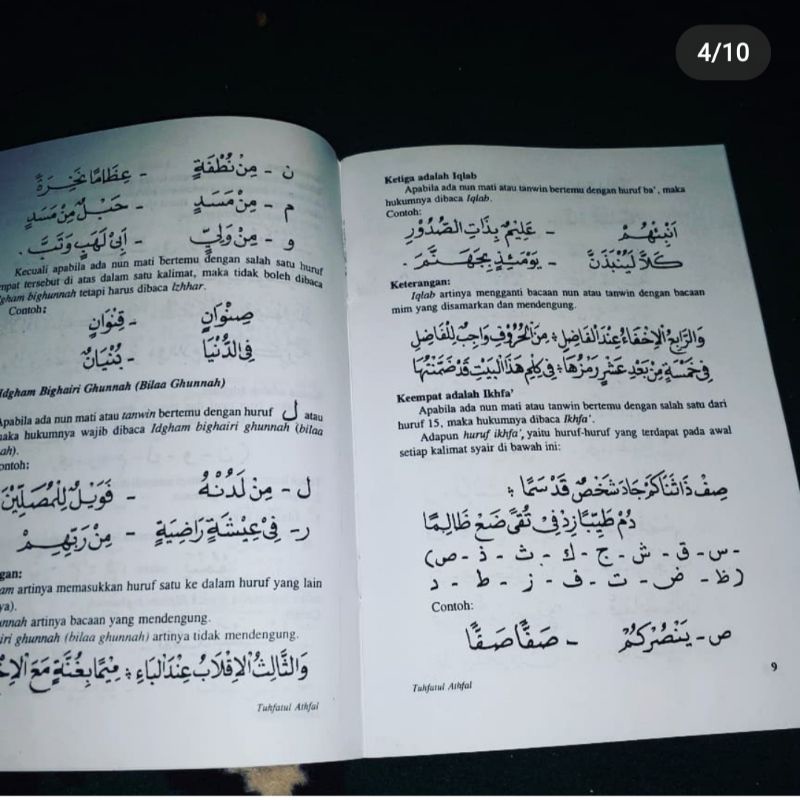 4/10
ن - مِنْ نُطْفَةٍ - عِظَامًا نَخِرَةً
م - مِنْ مَسَدٍ - حَبْلٌ مِنْ مَسَدٍ
و - مِنْ وَلِيٍّ - أَبِيْ لَهَبٍ وَتَبَّ .
Kecuali apabila ada nun mati bertemu dengan salah satu huruf
mpat tersebut di atas dalam satu kalimat, maka tidak boleh dibaca
gham bighunnah tetapi harus dibaca Izhhar.
Contoh:
صِنْوَانٍ - قِنْوَانٍ
فِى الدُّنْيَا - بُنْيَانٌ
Idgham Bighairi Ghunnah (Bilaa Ghunnah)
Apabila ada nun mati atau tanwin bertemu dengan huruf ل atau
maka hukumnya wajib dibaca Idgham bighairi ghunnah (bilaa
ah).
ontoh:
ل - مِنْ لَدُنْهُ - فَوَيْلٌ لِلْمُصَلِّيْنَ
ر - فِيْ عِيْشَةٍ رَاضِيَةٍ - مِنْ رَبِّهِمْ
gan:
am artinya memasukkan huruf satu ke dalam huruf yang lain
ya).
unnah artinya bacaan yang mendengung.
iri ghunnah (bilaa ghunnah) artinya tidak mendengung.
وَالثَّالِثُ الْإِقْلَابُ عِنْدَ الْبَاءِ ؞ مِيْمًا بِغُنَّةٍ مَعَ الْإِخْ
Tuhfatul Athfal
Ketiga adalah Iqlab
Apabila ada nun mati atau tanwin bertemu dengan huruf ba', maka
hukumnya dibaca Iqlab.
Contoh:
أَنْبِئْهُمْ - عَلِيْمٌ بِذَاتِ الصُّدُوْرِ
كَلَّا لَيُنْبَذَنَّ - يَوْمَئِذٍ بِجَهَنَّمَ .
Keterangan:
Iqlab artinya mengganti bacaan nun atau tanwin dengan bacaan
mim yang disamarkan dan mendengung.
وَالرَّابِعُ الْإِخْفَاءُ عِنْدَ الْفَاضِلِ ؞ مِنَ الْحُرُوْفِ وَاجِبٌ لِلْفَاضِلِ
فِيْ خَمْسَةٍ مِنْ بَعْدِ عَشْرٍ رَمْزُهَا ؞ فِيْ كِلْمِ هٰذَا الْبَيْتِ قَدْ ضَمَّنْتُهَا
Keempat adalah Ikhfa'
Apabila ada nun mati atau tanwin bertemu dengan salah satu dari
huruf 15, maka hukumnya dibaca Ikhfa'.
Adapun huruf ikhfa', yaitu huruf-huruf yang terdapat pada awal
setiap kalimat syair di bawah ini:
صِفْ ذَا ثَنَا كَمْ جَادَ شَخْصٌ قَدْ سَمَا ؞
دُمْ طَيِّبًا زِدْ فِيْ تُقًى ضَعْ ظَالِمًا
(ص - ذ - ث - ك - ج - ش - ق - س -
د - ط - ز - ف - ت - ض - ظ)
Contoh:
ص - يَنْصُرْكُمْ - صَفًّا صَفًّا
9
Tuhfatul Athfal